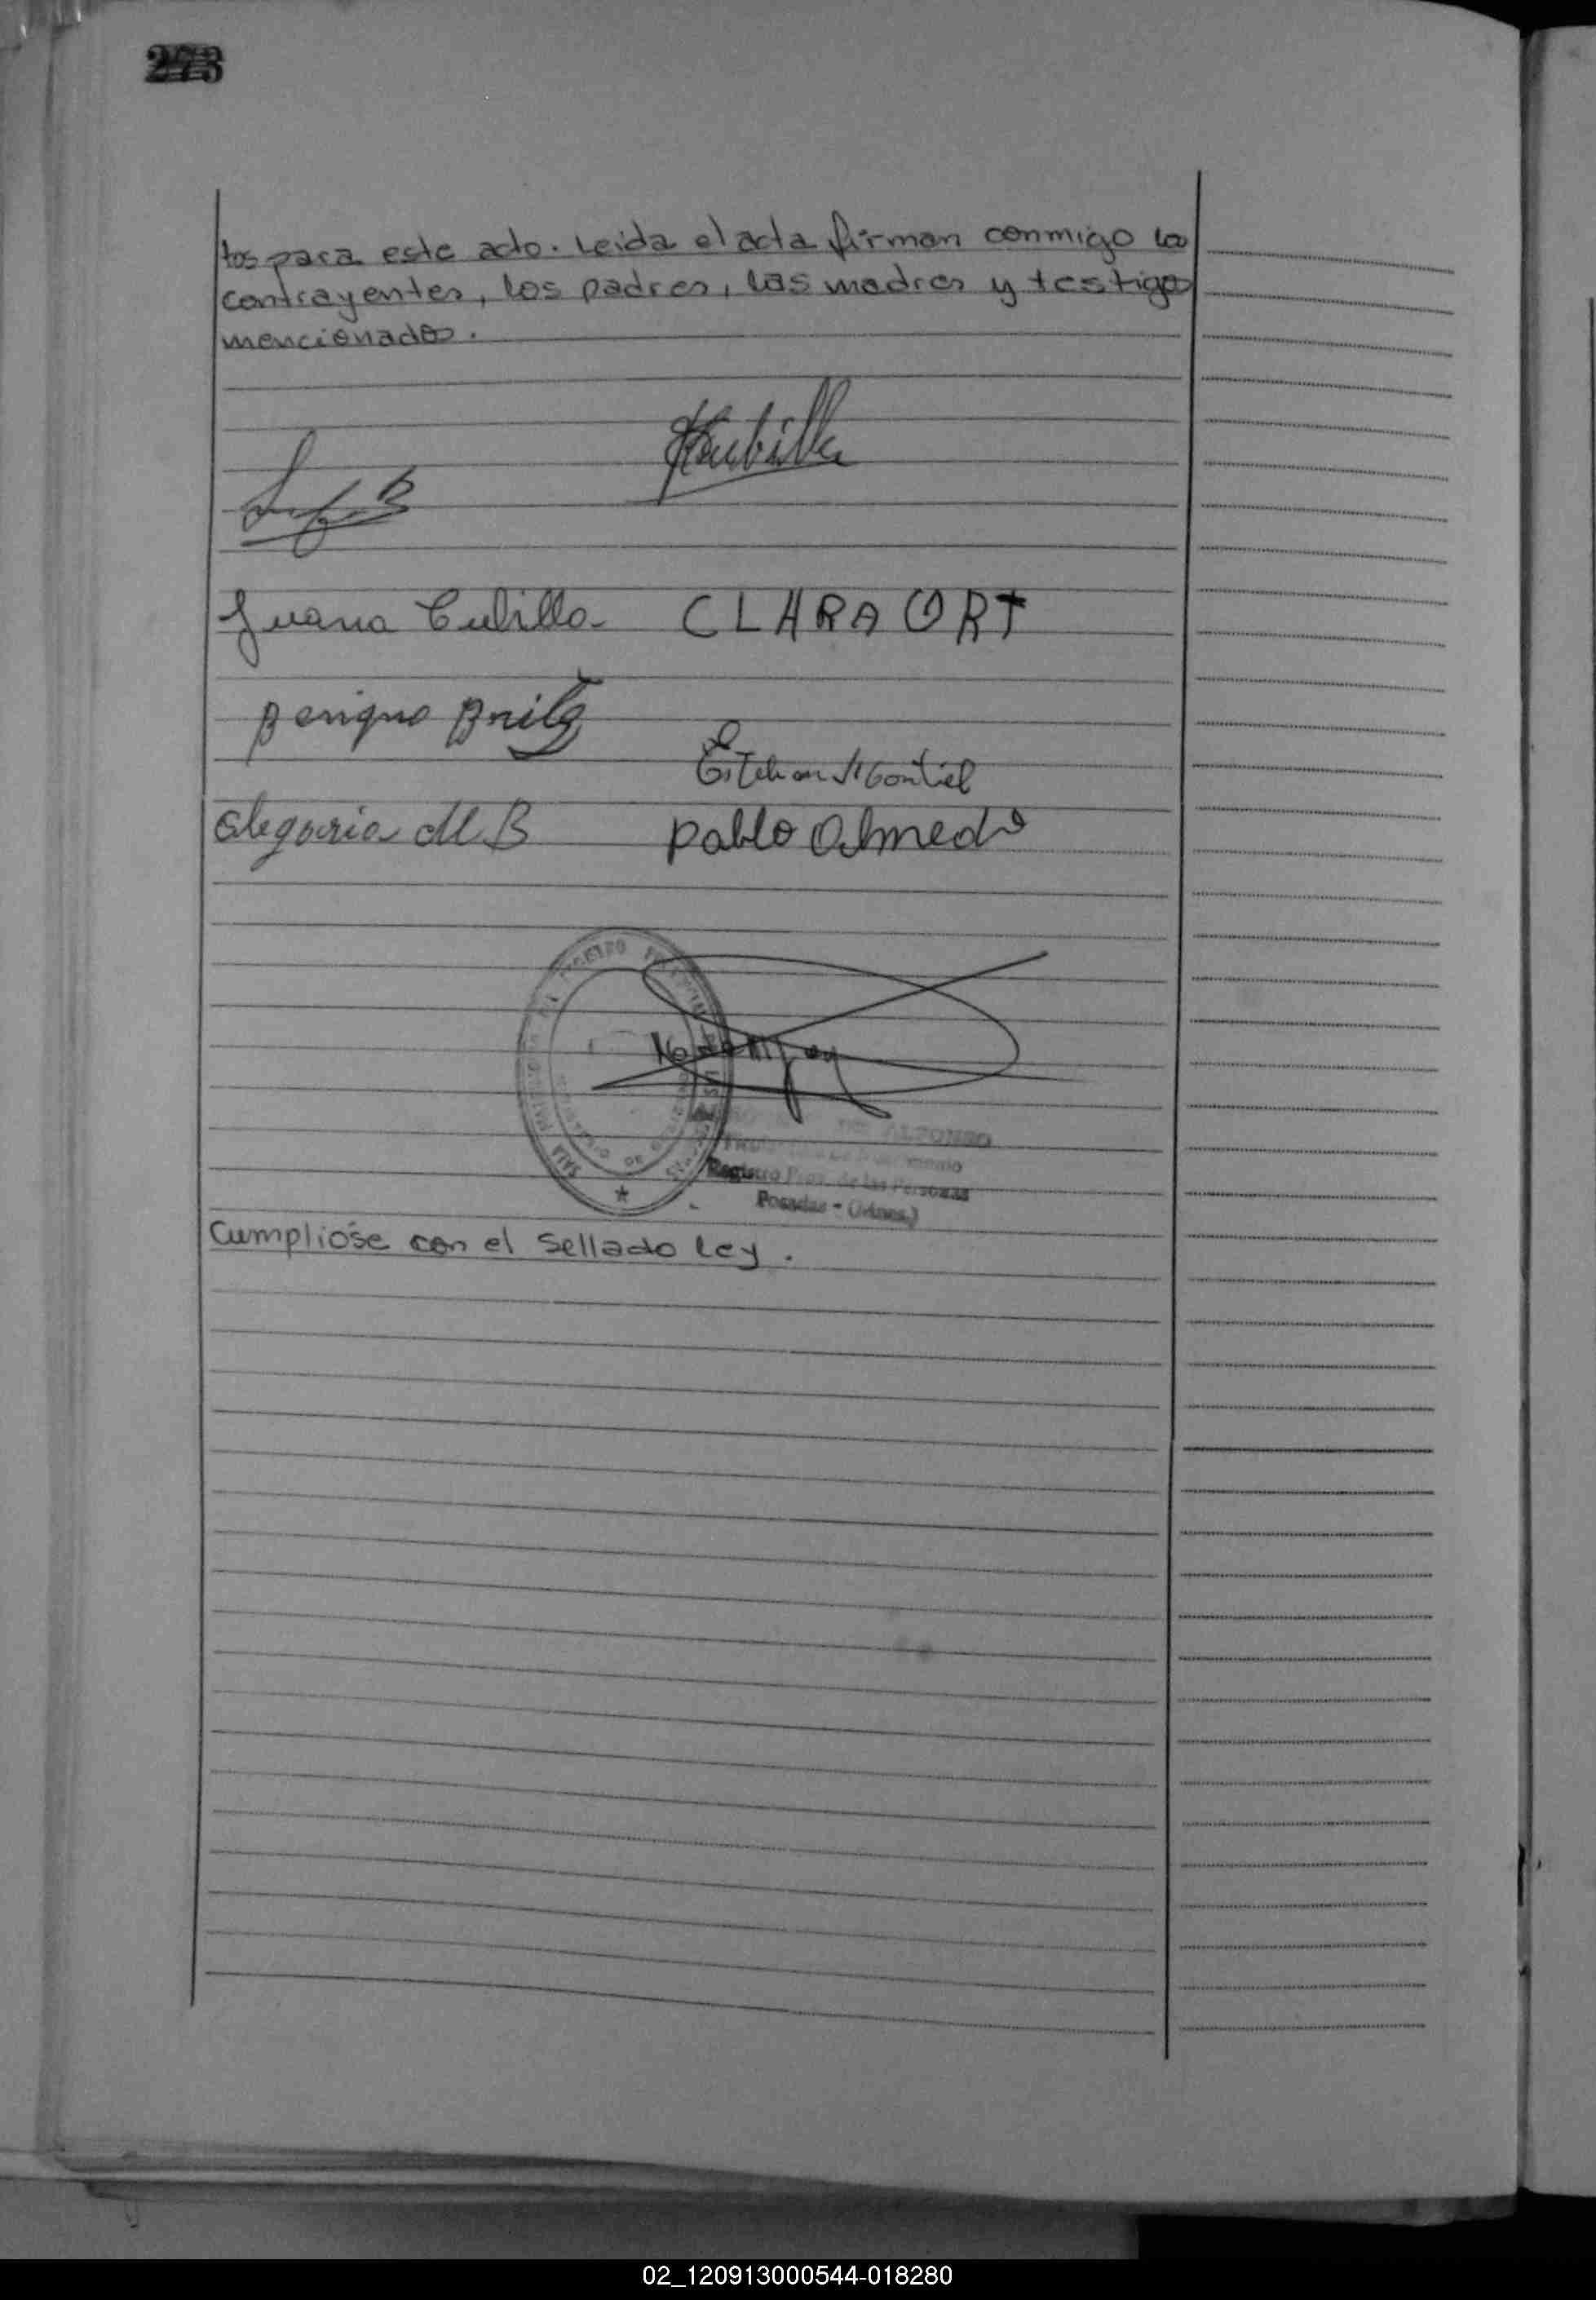 273
tos para este acto. Leida el acta firman conmigo los
contrayentes, los padres, las madres y testigos
mencionados.
Juana Cubilla CLARA ORT
Benigno Britez
Esteban Montiel
Alegoria M. B Pablo Olmedo
SALA
DE
ALFONSO
Registro Prov. de las Personas
Posadas - (Mnes.)
Cumplióse con el Sellado Ley.
02_120913000544-018280